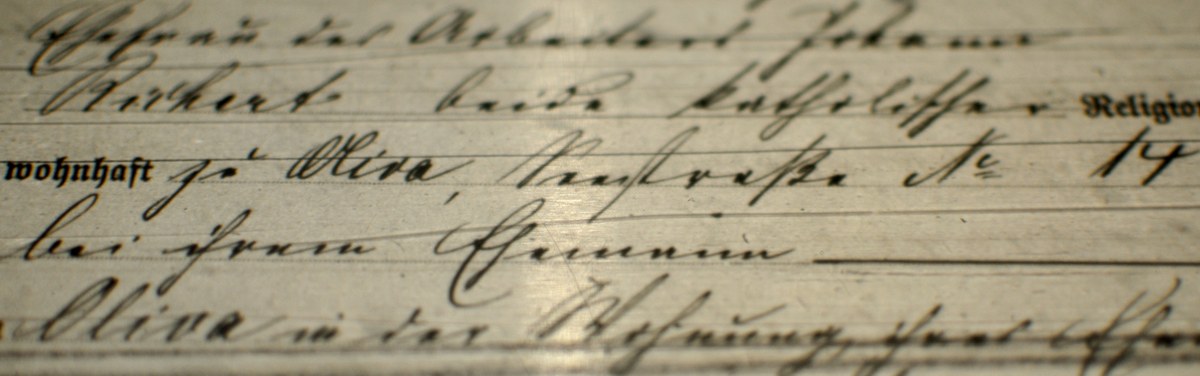 Ehefrau des Arbeiters Johann
beide katholischer Religio
wohnhaft zu Oliva, Seestraße No 14
bei ihrem Ehemann
Oliva in der Wohnung ihres Ehe